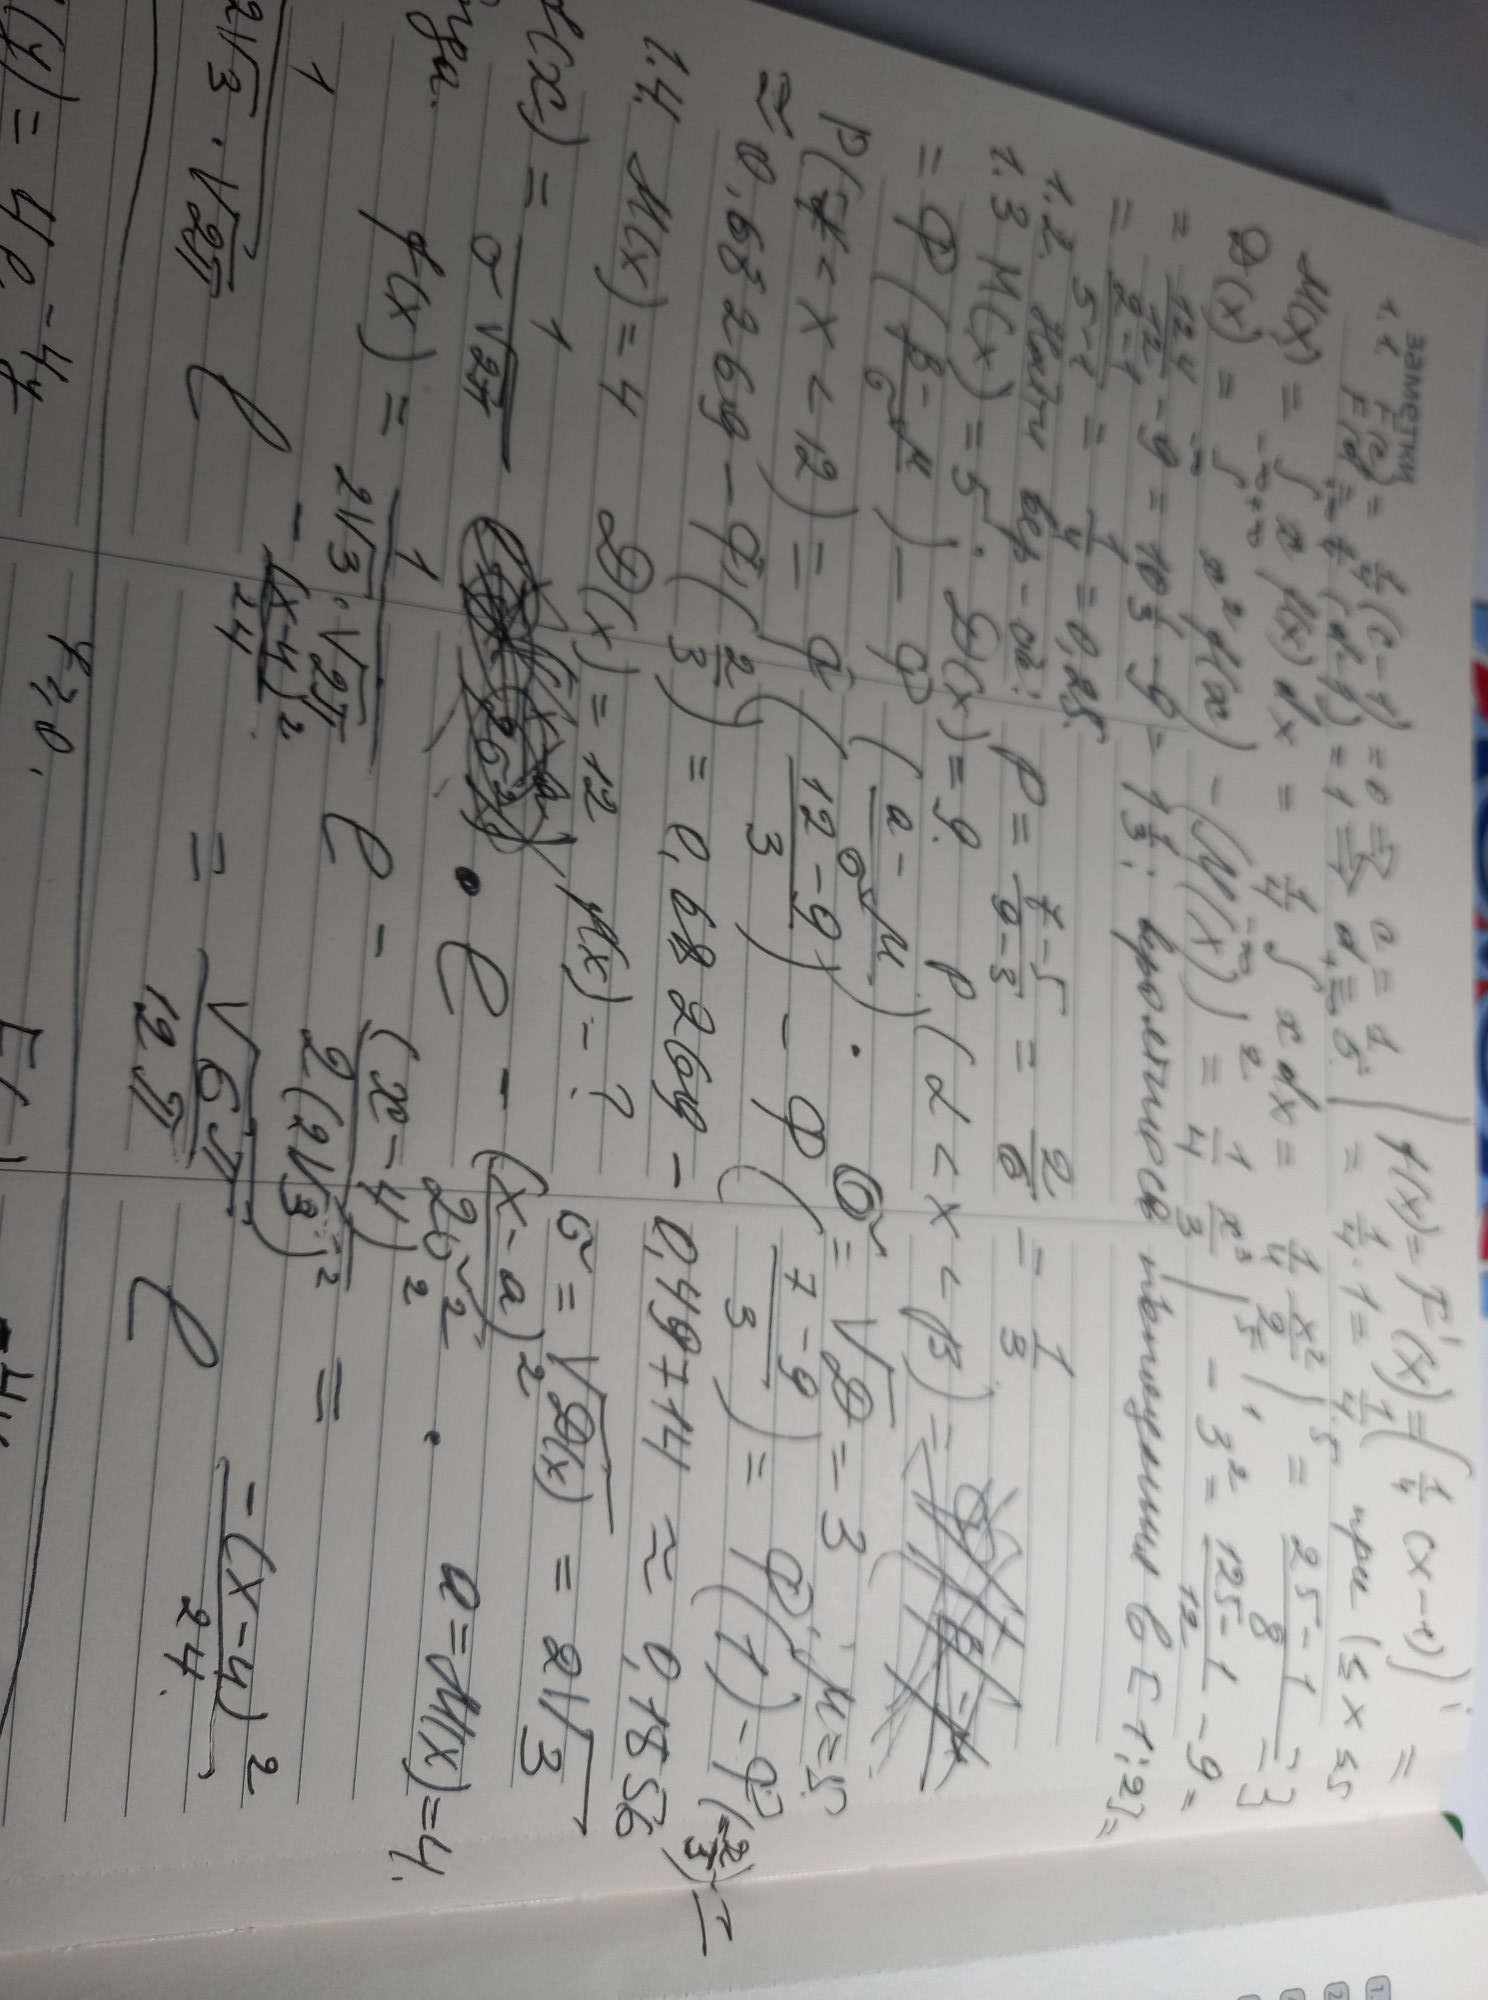 заметки
1.1 F(c) = 1/4 (c-1) = 0 ⇒ c = 1
F(d) = 1/4 (d-1) = 1 ⇒ d = 5. f(x) = F'(x) = (1/4 (x-1))' =
= 1/4 · 1 = 1/4 при 1 ≤ x ≤ 5
M(x) = ∫ x f(x) dx = 1/4 ∫ x dx = 1/4 · x²/2 |⁵₁ = 25-1/8 = 3
D(x) = ∫ x² f(x) - (M(x))² = 1/4 x³/3 |⁵ - 3² = 125-1/12 - 9 =
= 124/12 - 9 = 10 1/3 - 9 = 1 1/3; вероятность попадания в [1;2] =
= 2-1/5-1 = 1/4 = 0,25.
1.2. Найти вер-сть: P = 7-5/9-3 = 2/6 = 1/3
1.3 M(x) = 5; D(x) = 9. P(α < x < β) =
= Ф(β-μ/σ) - Ф(a-μ/σ). σ = √D = 3; μ = 5.
P(7 < x < 12) = Ф(12-9/3) - Ф(7-9/3) = Ф(1) - Ф(-2/3) =
≃ 0,682689 - Ф(2/3) = 0,682689 - 0,499714 ≈ 0,18556
1.4. M(x) = 4 D(x) = 12, f(x) - ? σ = √D(x) = 2√3
f(x) = 1/σ√2π • e - (x-a)²/2σ² . a = M(x) = 4.
f(x) = 1/2√3 · √2π e - (x-4)²/2(2√3)² =
1/2√3 · √2π e - (x-4)²/24 = √6π/12π e -(x-4)²/24.
(y) = 4e^-4y y ≥ 0.